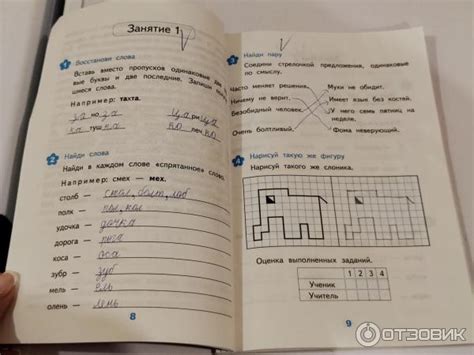 Занятие 1
1 Восстанови слова
Вставь вместо пропусков одинаковые две
вые буквы и две последние. Запиши
щиеся слова.
Например: тахта.
за но за
ца ри ца
ка туш ка
ко печ ко
2 Найди слова
Найди в каждом слове «спрятанное» слово.
Например: смех — мех.
столб — стол, болт, лоб
полк — пол, кол
удочка — дочка
дорога — рога
коса — оса
зубр — зуб
мель — ель
олень — лень
8
3 Найди пару
Соедини стрелочкой предложения, одинаковые
по смыслу.
Часто меняет решения.
Ничему не верит.
Безобидный человек.
Очень болтливый.
Мухи не обидит.
Имеет язык без костей.
У него семь пятниц на
неделе.
Фома неверующий.
4 Нарисуй такую же фигуру
Нарисуй такого же слоника.
Оценка выполненных заданий.
1 2 3 4
Ученик
Учитель
9
ОТЗОВИК